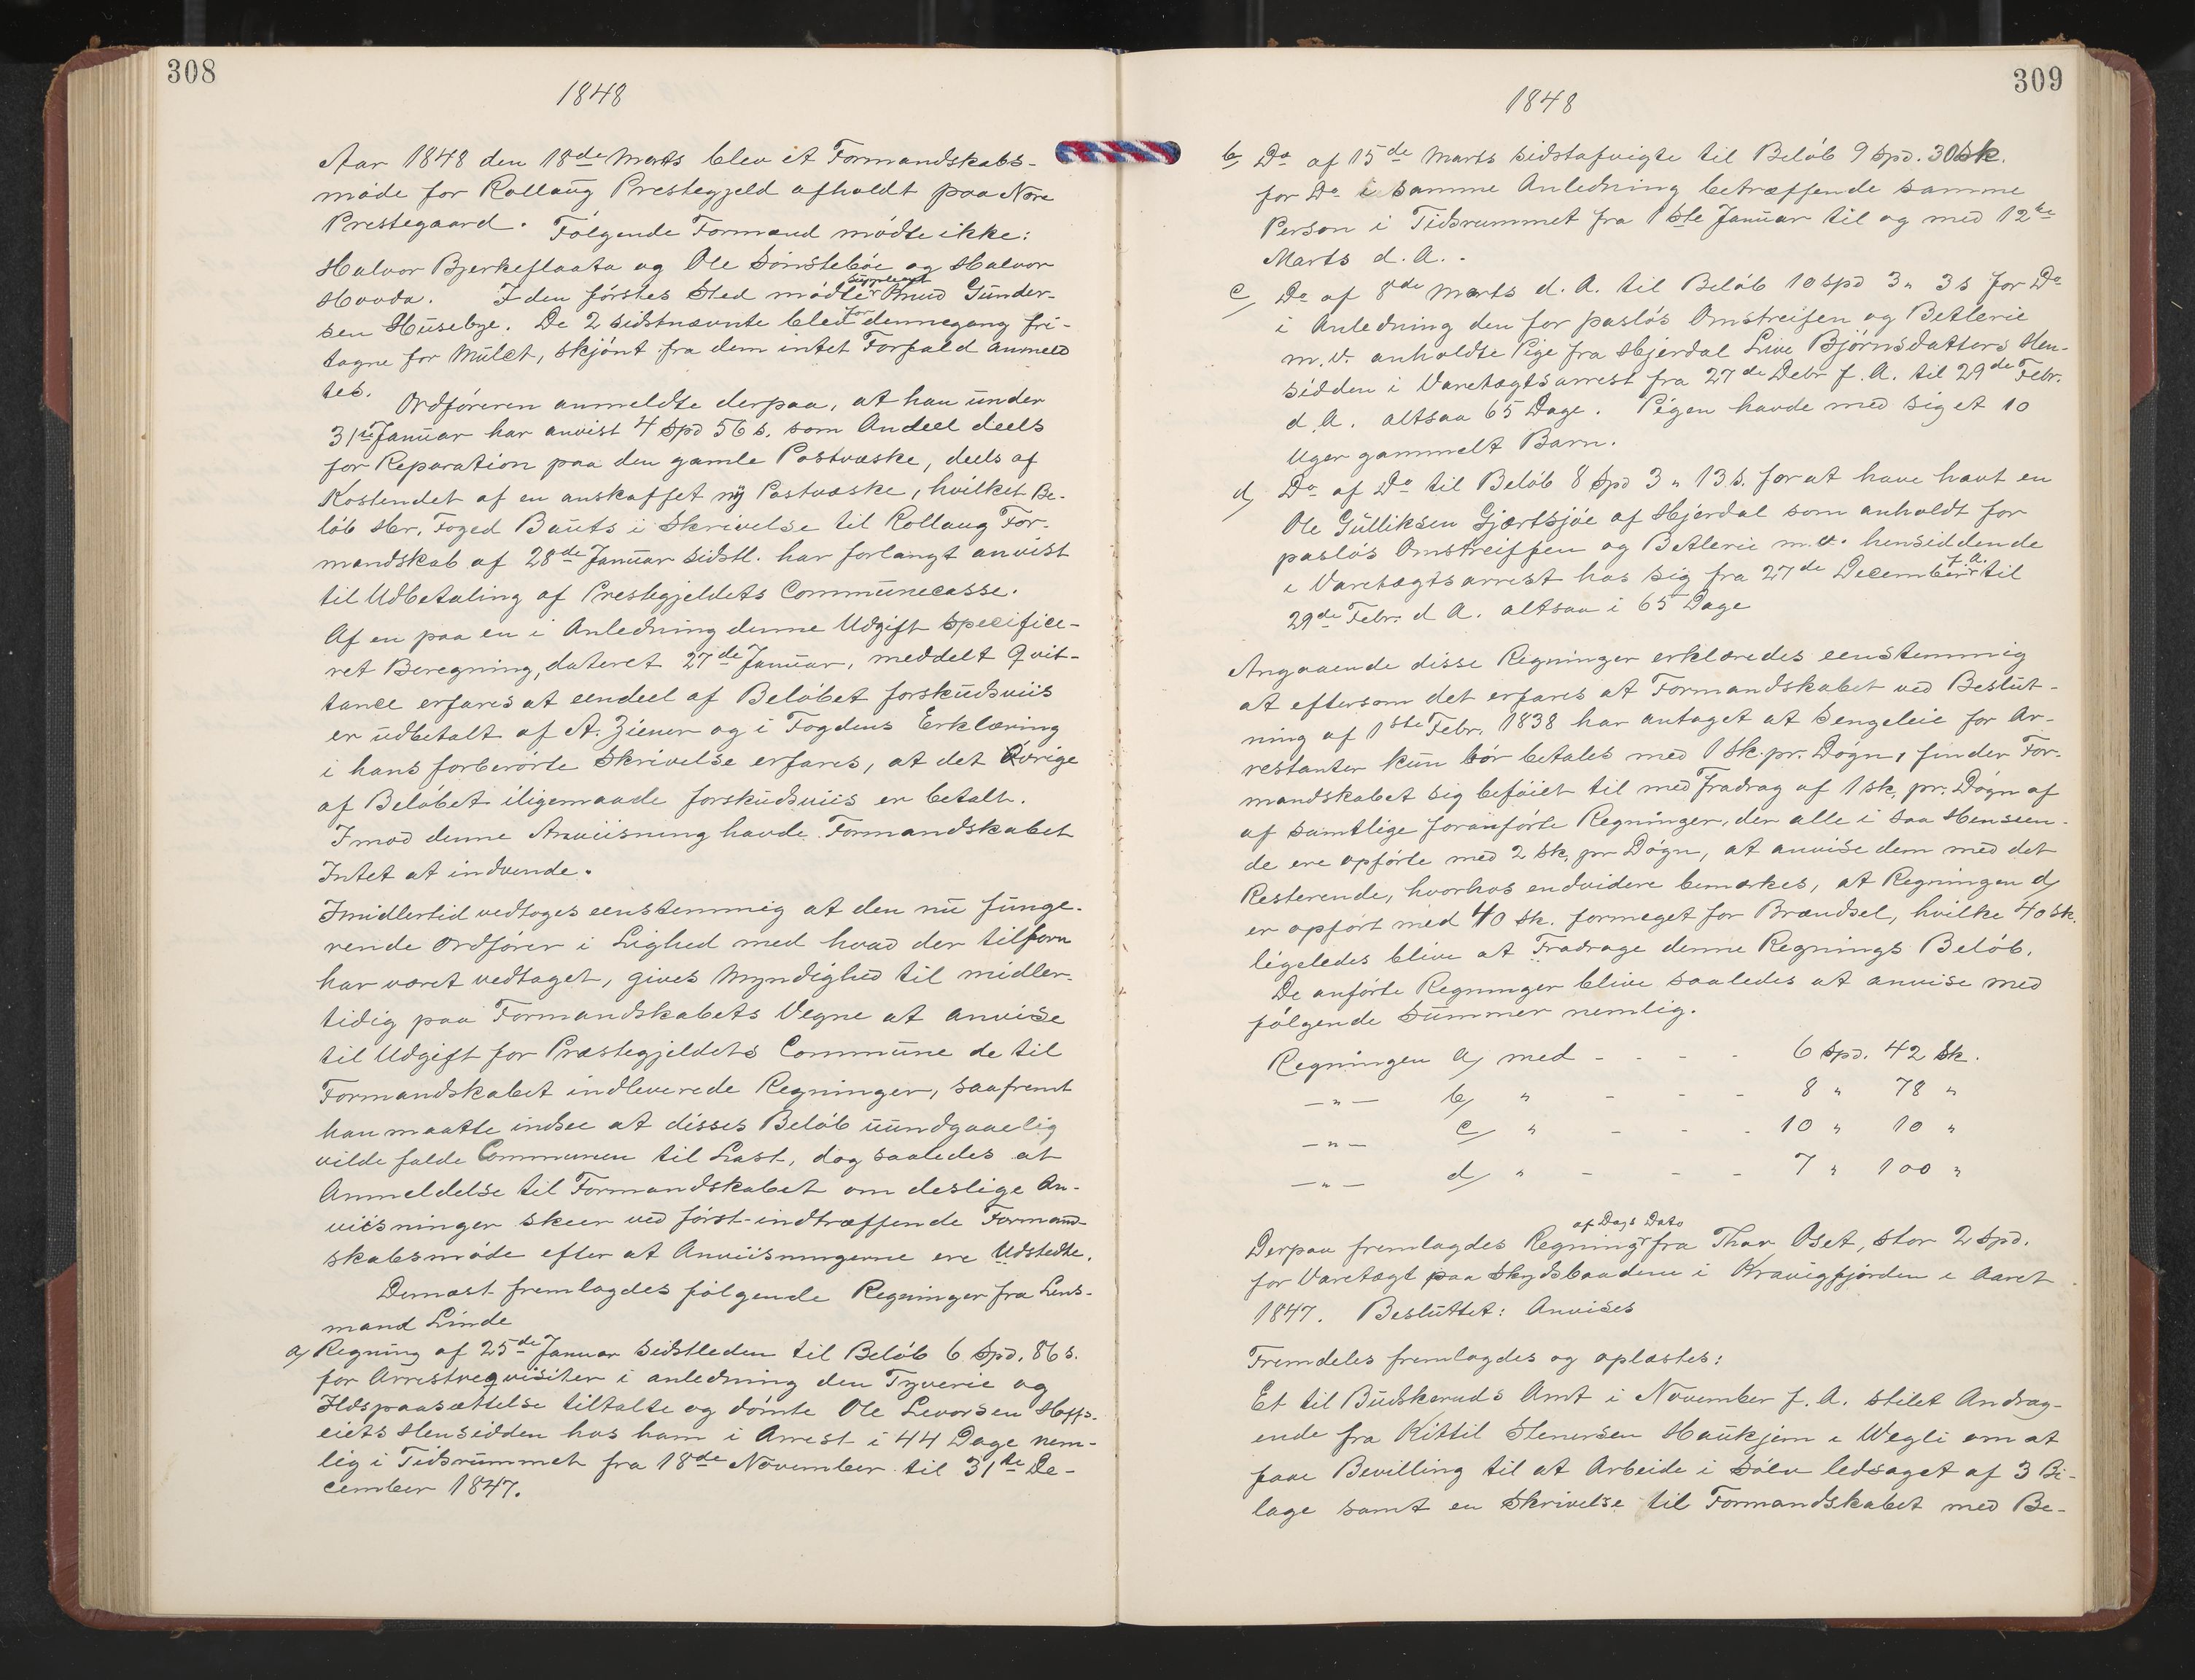 308
1848
Aar 1848 den 18de Marts blev et Formandskabs-
møde for Rollaug Prestegjeld afholdt paa Nore
Prestegaard. Følgende Formænd mødte ikke:
Halvor Bjerkeflaata og Ole Sønstebøe og Halvor
Hovda. I den førstes Sted mødte Supleant Knud Gunder-
sen Husebye. De 2 sidstnævnte blev for dennegang fri-
tagne for Mulct, skjønt fra dem intet Forfald anmeld
tes.
Ordføreren anmeldte derpaa, at han under
31te Januar har anvist 4 Spd 56 s. som Andeel deels
for Reparation paa den gamle Postvæske, deels af
Kostendet af en anskaffet ny Postvæske, hvilket Be-
løb Hr. Foged Bauts i Skrivelse til Rollaug For-
mandskab af 28de Januar sidstl. har forlangt anvist
til Udbetaling af Prestegjeldets Communecasse.
Af en paa en i Anledning denne Udgift specifice-
ret Beregning, dateret 27de Januar, meddelt Qvit-
tance erfares at eendeel af Beløbet forskudsviis
er udbetalt af A. Ziener og i Fogdens Erklæring
i hans forberørte Skrivelse erfares, at det Øvrige
af Beløbet iligemaade forskudsviis er betalt.
Imod denne Anviisning havde Formandskabet
Intet at indvende.
Imidlertid vedtoges eenstemmig at den nu funge-
rende Ordfører i Lighed med hvad der tilforn
har været vedtaget, gives Myndighed til midler-
tidig paa Formandskabets Vegne at anvise
til Udgift for Præstegjeldets Commune de til
Formandskabet indleverede Regninger, saafremt
han maatte indsee at disses Beløb uundgaaelig
vilde falde Communen til Last, dog saaledes at
Anmeldelse til Formandskabet om deslige An-
viisninger skeer ved først-indtræffende Formand-
skabsmøde efter at Anviisningerne ere Udstedte.
Dernæst fremlagdes følgende Regninger fra Lens-
mand Linde
a) Regning af 25de Januar sidstleden til Beløb 6 Spd. 86 s.
for Arrestreqvisiter i anledning den Tyverie og
Ildspaasættelse tiltalte og dømte Ole Levorsen Hoffs-
eiets Hensidden hos ham i Arrest i 44 Dage nem-
lig i Tidsrummet fra 18de November til 31te De-
cember 1847.
309
1848
b) Do af 15de Marts sidstafvigte til Beløb 9 Spd. 30 sk.
for Do i samme Anledning betræffende samme
Person i Tidsrummet fra 1ste Januar til og med 12te
Marts d. A. -
c) Do af 8de Marts d. A. til Beløb 10 spd 3 " 3 s for Do
i Anledning den for pasløs Omstreifen og Betlerie
m. v. anholdte Pige fra Hjerdal Live Bjørnsdatters Hen-
sidden i Varetægtsarrest fra 27de Debr f. A. til 29de Febr.
d. A. altsaa 65 Dage. Pigen havde med sig et 10
Uger gammelt Barn.
d) Do af Do til Beløb 8 Spd 3 " 13 s. for at have havt en
Ole Gulliksen Gjærtsjøe af Hjerdal som anholdt for
pasløs Omstreiffen og Betlerie m.v. hensiddende
i Varetægtsarrest hos sig fra 27de December f.A. til
29de Febr. d A. altsaa i 65 Dage
Angaaende disse Regninger erklæredes eenstemmig
at eftersom det erfares at Formandskabet ved Beslut-
ning af 1ste Febr. 1838 har antaget at Sengeleie for Ar-
restanter kun bør betales med 1 sk. pr. Døgn, finder For-
mandskabet sig beføiet til med Fradrag af 1 sk. pr. Døgn af
af samtlige foranførte Regninger, der alle i saa Henseen-
de ere opførte med 2 sk. pr Døgn, at anvise dem med det
Resterende, hvorhos endvidere bemærkes, at Regningen d)
er opført med 40 sk. formeget for Brændsel, hvilke 40 sk.
ligeledes blive at Fradrage denne Regnings Beløb.
De anførte Regninger blive saaledes at anvise med
følgende Summer nemlig.
Regningen a) med - - - - 6 Spd. 42 Sk.
— " — b) " - - - 8 " 78 "
— " — c) " - - - 10 " 10 "
— " — d) " - - - 7 " 100 "
Derpaa fremlagdes Regning af Dags Dato fra Thor Oset, stor 2 Spd.
for Varetægt paa Skydsbaadene i Kravigfjorden i Aaret
1847. Besluttet: Anvises
Fremdeles fremlagdes og oplæstes:
Et til Buskeruds Amt i November f. A. stilet Andrag-
ende fra Kittil Stenersen Haukjem i Wegli om at
faae Bevilling til at Arbeide i Sølv ledsaget af 3 Bi-
lage samt en Skrivelse til Formandskabet med Be-